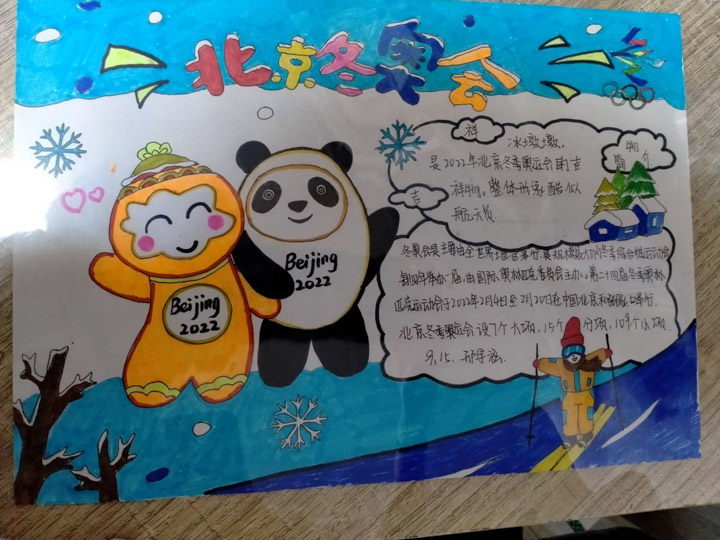 北京冬奥会
祥
吉
物
简介
冰墩墩.
是2022年北京冬季奥运会的吉
祥物。整体形象酷似
航天员
冬奥会是主要由全世界地区举行,
每四年举办一届,由国际奥林匹克委员会主办。第二十四届冬季奥林
匹克运动会于2022年2月4日至2月20日在中国北京和张家口举行.
北京冬季奥运会设7个大项,15个分项,109个小项.
9.15.
Beijing
2022
Beijing
2022